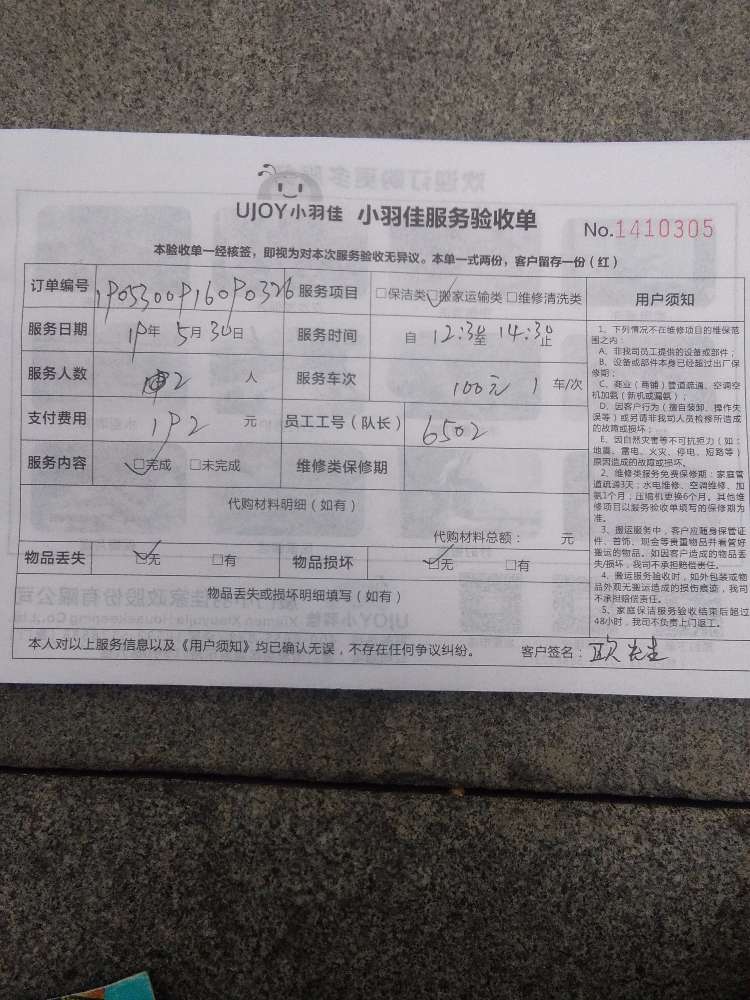 UJOY小羽佳 小羽佳服务验收单
No.1410305
本验收单一经核签，即视为对本次服务验收无异议。本单一式两份，客户留存一份（红）
订单编号 1P05300P160P0326 服务项目 □保洁类 □搬家运输类 □维修清洗类
服务日期 1P年 5月 30日 服务时间 自 12:30至 14:30止
服务人数 2 人 服务车次 100元 1 车/次
支付费用 1P2 元 员工工号（队长） 6502
服务内容 □完成 □未完成 维修类保修期
代购材料明细（如有）
代购材料总额： 元
物品丢失 □无 □有 物品损坏 □无 □有
物品丢失或损坏明细填写（如有）
本人对以上服务信息以及《用户须知》均已确认无误，不存在任何争议纠纷。 客户签名：欧先生
用户须知
1、下列情况不在维修项目的维保范
围之内：
A、非我司员工提供的设备或部件；
B、设备或部件本身已经超过出厂保
修期；
C、商业（商铺）管道疏通、空调空
机加氨（新机或漏氨）；
D、因客户行为（擅自装卸、操作失
误等）或另请非我司人员检修所造成
的故障或损坏；
E、因自然灾害等不可抗拒力（如：
地震、雷电、火灾、停电、短路等）
原因造成的故障或损坏。
2、维修类服务免费保修期：家庭管
道疏通3天；水电维修、空调维修、加
氨1个月；压缩机更换6个月。其他维
修项目以服务验收单填写的保修期为
准。
3、搬运服务中，客户应随身保管证
件、首饰、现金等贵重物品并看管好
搬运的物品。如因客户造成的物品丢
失/损坏，我司不承担赔偿责任。
4、搬运服务验收时，如外包装或物
品外观无搬运造成的损伤痕迹，我司
不承担赔偿责任。
5、家庭保洁服务验收结束后超过
48小时，我司不负责上门返工。